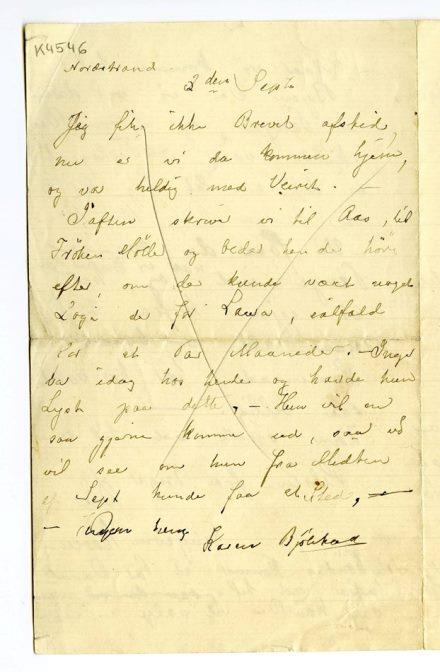 K4546
Nordstrand
2den Sept.
Jeg fik ikke Brevet afsted,
nu er vi da kommen hjem,
og var heldig med Veiret. –
Iaften skrive vi til Aas, til
Frøken Holte og beder hende høre
efter, om der kunde vært noget
Logi der for Laura, ialfald
for et Par Maaneder. – Inger
var idag hos hende og havde hun
Lyst paa dette, – Hun vil en
saa gjerne komme ud, saa vi
vil see om hun fra Midten
af Sept kunde faa et Sted, –
– Karen Bjølstad